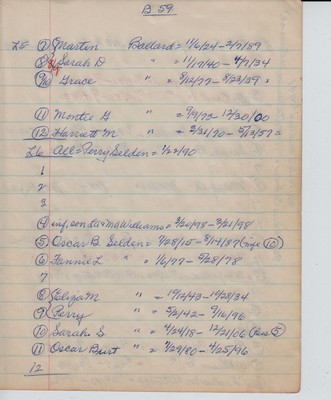 B 59
L5 (7) Martin Ballard = 11/6/24 - 2/7/89
(8) Sarah D " = 11/17/40 - 4/7/34
(9/10) Grace " = 9/12/77 - 8/23/39 =
(11) Montie G " = 9/9/73 - 12/30/00
(12) Harriett M " = 2/26/70 - 5/13/57 =
L6 All = Perry Selden = 1/22/90
1
2
3
(4) inf, son La & Ma Williams = 3/20/98 - 3/21/98
(5) Oscar B. Selden = 4/28/15 - 8/14/87 (wife (10))
(6) Fannie L " = 1/6/77 - 5/28/78
7
(8) Eliza M " = 10/12/43 - 10/28/34
(9) Perry " = 5/2/42 - 9/16/96
(10) Sarah S " = 4/24/18 - 12/21/06 (Hus. (5))
(11) Oscar Burt " = 7/29/80 - 4/25/96
12